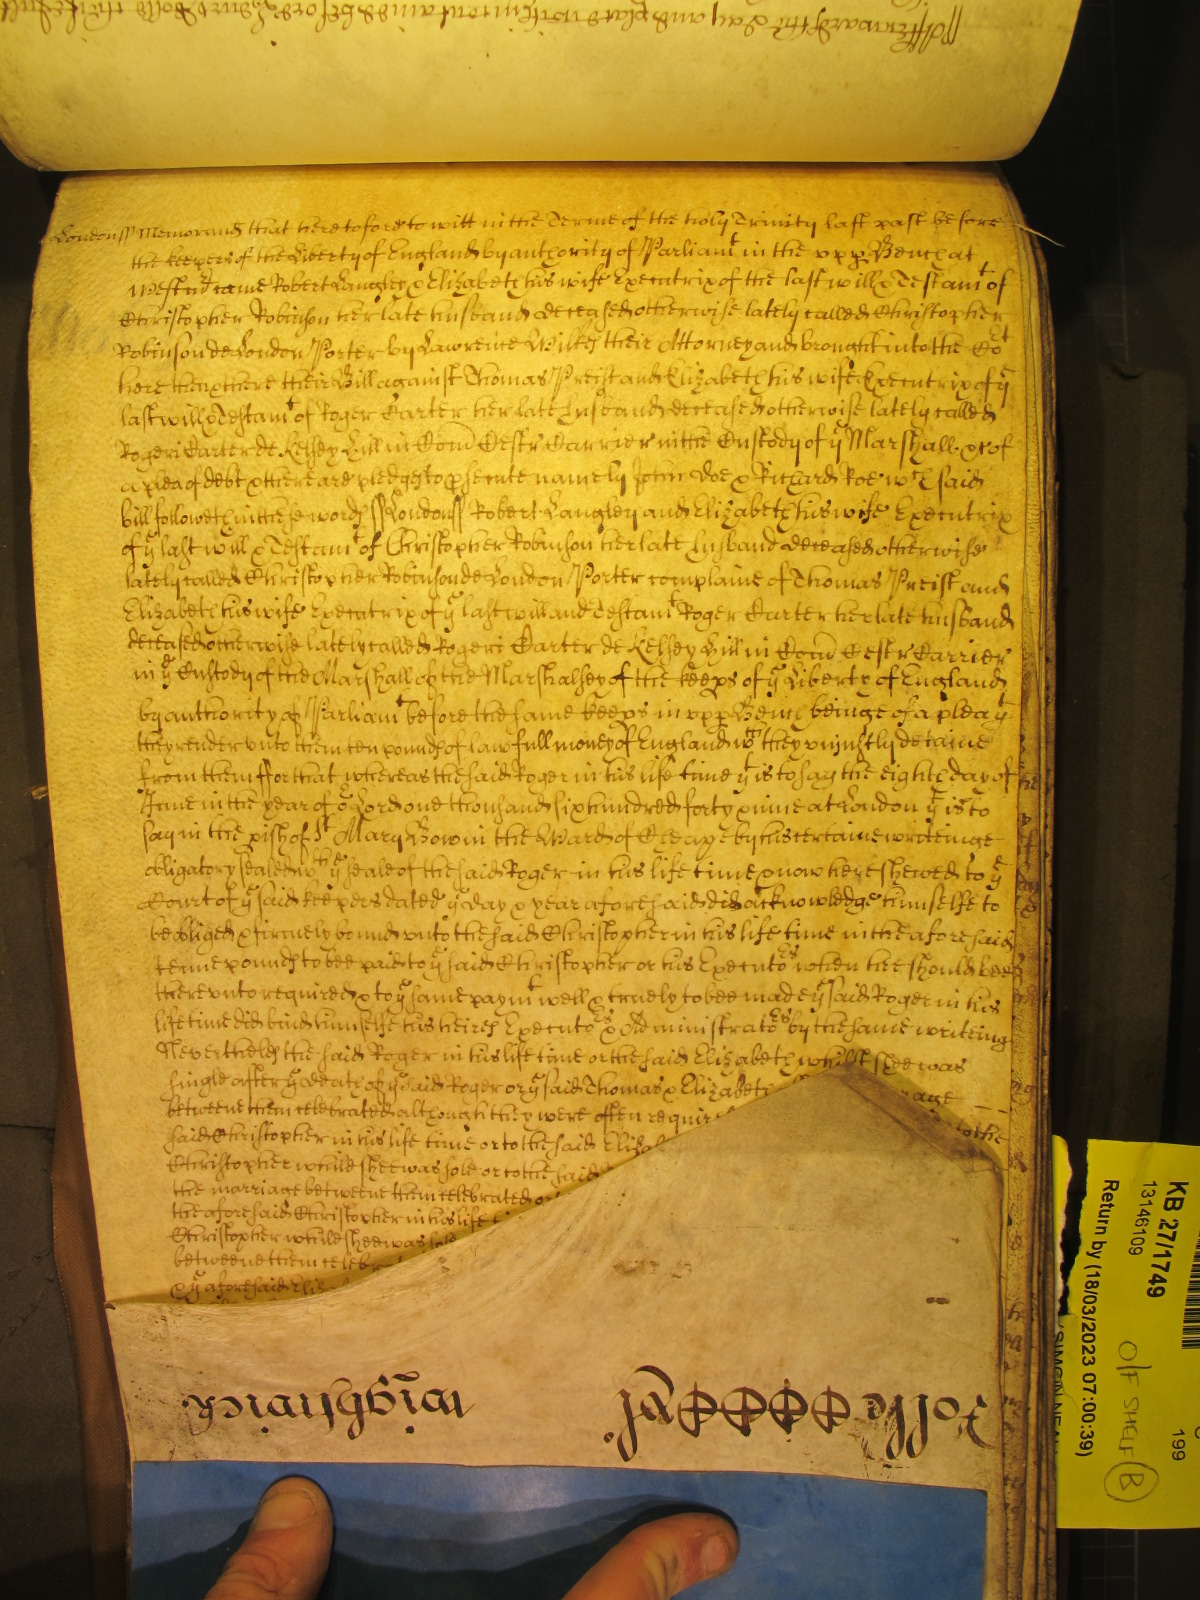 Afterwards the day and place within conteined before
London ss Memorand that heretofore to witt in the Terme of the holy Trinity last past before
the keepers of the Liberty of England by authority of Parliamt in the upp Bench at
Westmr came Robert Langley & Elizabeth his wife Executrix of the last will & Testamt of
Christopher Robinson her late husband deceased otherwise lately called Christopher
Robinson de London Porter by Lawrence Wilkes their Attorney and brought into the Cort
here then & there their Bill against Thomas Preist and Elizabeth his wife Executrix of ye
last will & Testamt of Roger Carter her late husband deceased otherwise lately called
Rogeri Carter de Kelsey Hill in Com Cestr Carrier in the Custody of ye Marshall &c of
a plea of debt & there are pledges to psecute namely John Doe & Richard Roe wch said
bill followeth in these words ss London ss Robert Langley and Elizabeth his wife Executrix
of ye last will & Testamt of Christopher Robinson her late husband deceased otherwise
lately called Christopher Robinson de London Porter complaine of Thomas Preist and
Elizabeth his wife Executrix of ye last will and Testamt Roger Carter her late husband
deceased otherwise lately called Rogeri Carter de Kelsey Hill in Com Cestr Carrier
in ye Custody of the Marshall of the Marshalsey of the keeps of ye Liberty of England
by authority of Parliamt before the same keeps in upp Bench beinge of a plea yt
they render unto them ten pounds of lawfull money of England wch they uniustly detaine
from them ffor that whereas the said Roger in his life time yt is to say the eighth day of
June in the year of or Lord one thousand six hundred forty & nine at London yt is to
say in the pish of St Mary Bow in the Ward of Cheape by his certaine writeinge
obligatory sealed wth ye seale of the said Roger in his life time & now here shewed to ye
Court of ye said keepers dated ye day & year aforesaid did acknowledge himselfe to
be obliged & firmely bound unto the said Christopher in his life time in the aforesaid
tenne pounds to bee paid to ye said Christopher or his Executors when hee should bee
thereunto required & to ye same paymt well & truely to bee made ye said Roger in his
life time did bind himselfe his heires Executors & Administrators by the same writeing
Neverthelesse the said Roger in his life time or the said Elizabeth whilst shee was
single after ye death of ye said Roger or ye said Thomas & Elizabeth age
betweene them celebrated although they were often requir to the
said Christopher in his life time or to the said Eliza
Christopher while shee was sole or to the said
the marriage betweene them celebrated or
the aforesaid Christopher in his life t
Christopher while shee was sole
betweene them celebr
& ye aforesaid Eliz
KB 27/1749
13146109
Return by (18/03/2023 07:00:39)
O/F SHELF B
199